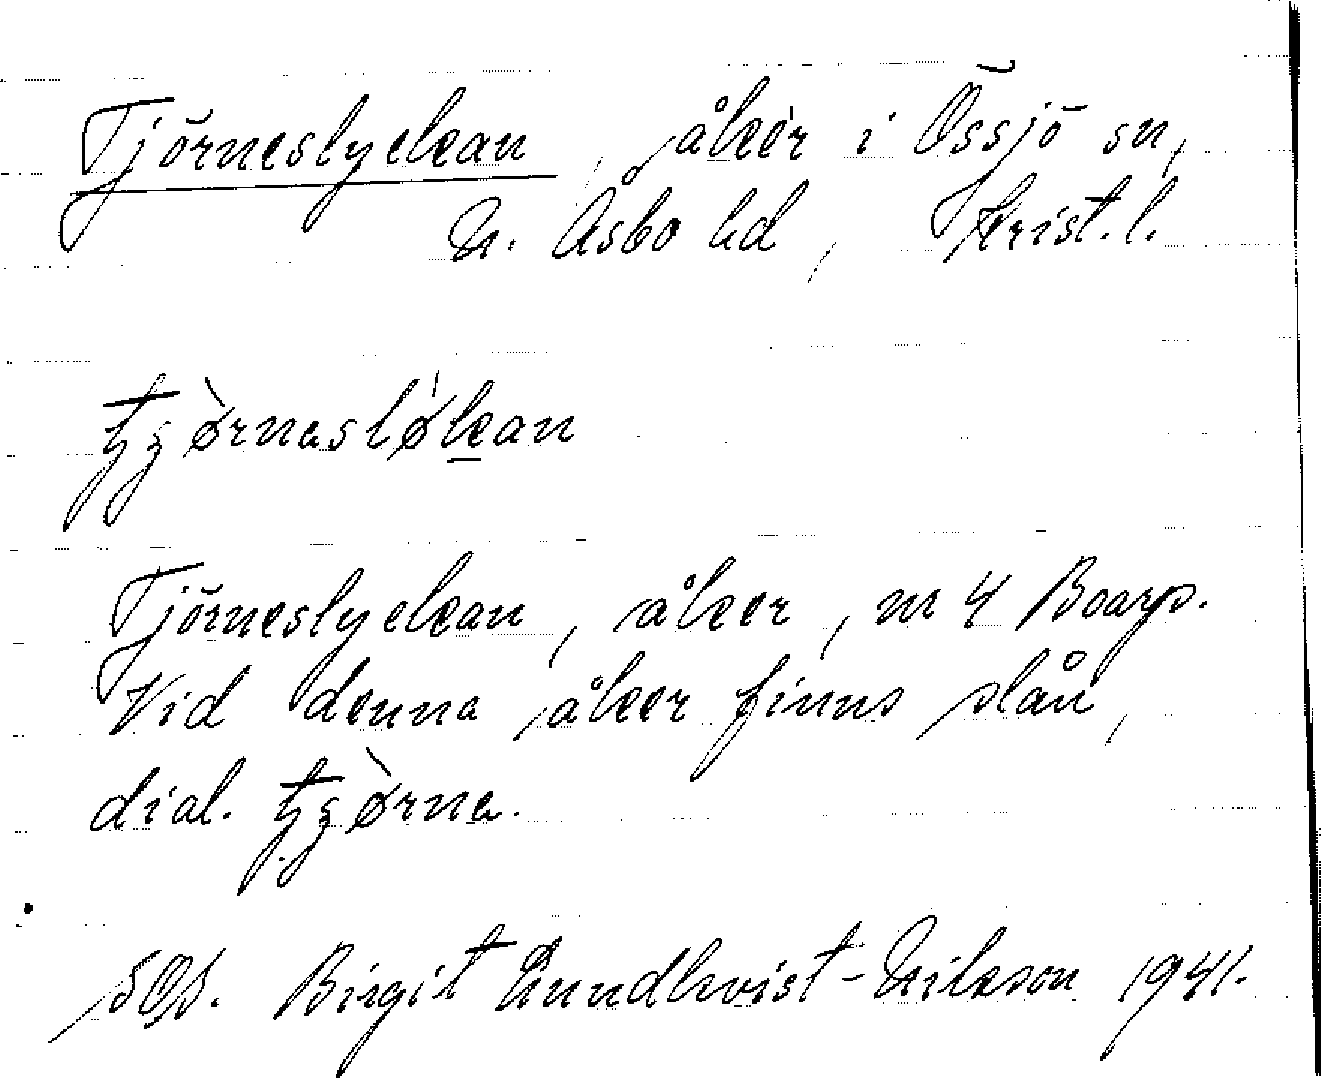 Tjörneslyckan, åker i Össjö sn,
N. Åsbo hd, Krist. l.
tʒø̀rnaslø̍kan
Tjörneslyckan, åker, nr 4 Boarp.
Vid denna åker finns slån,
dial. tʒø̀rna.
SOS. Birgit Lundkvist-Nilsson 1941.